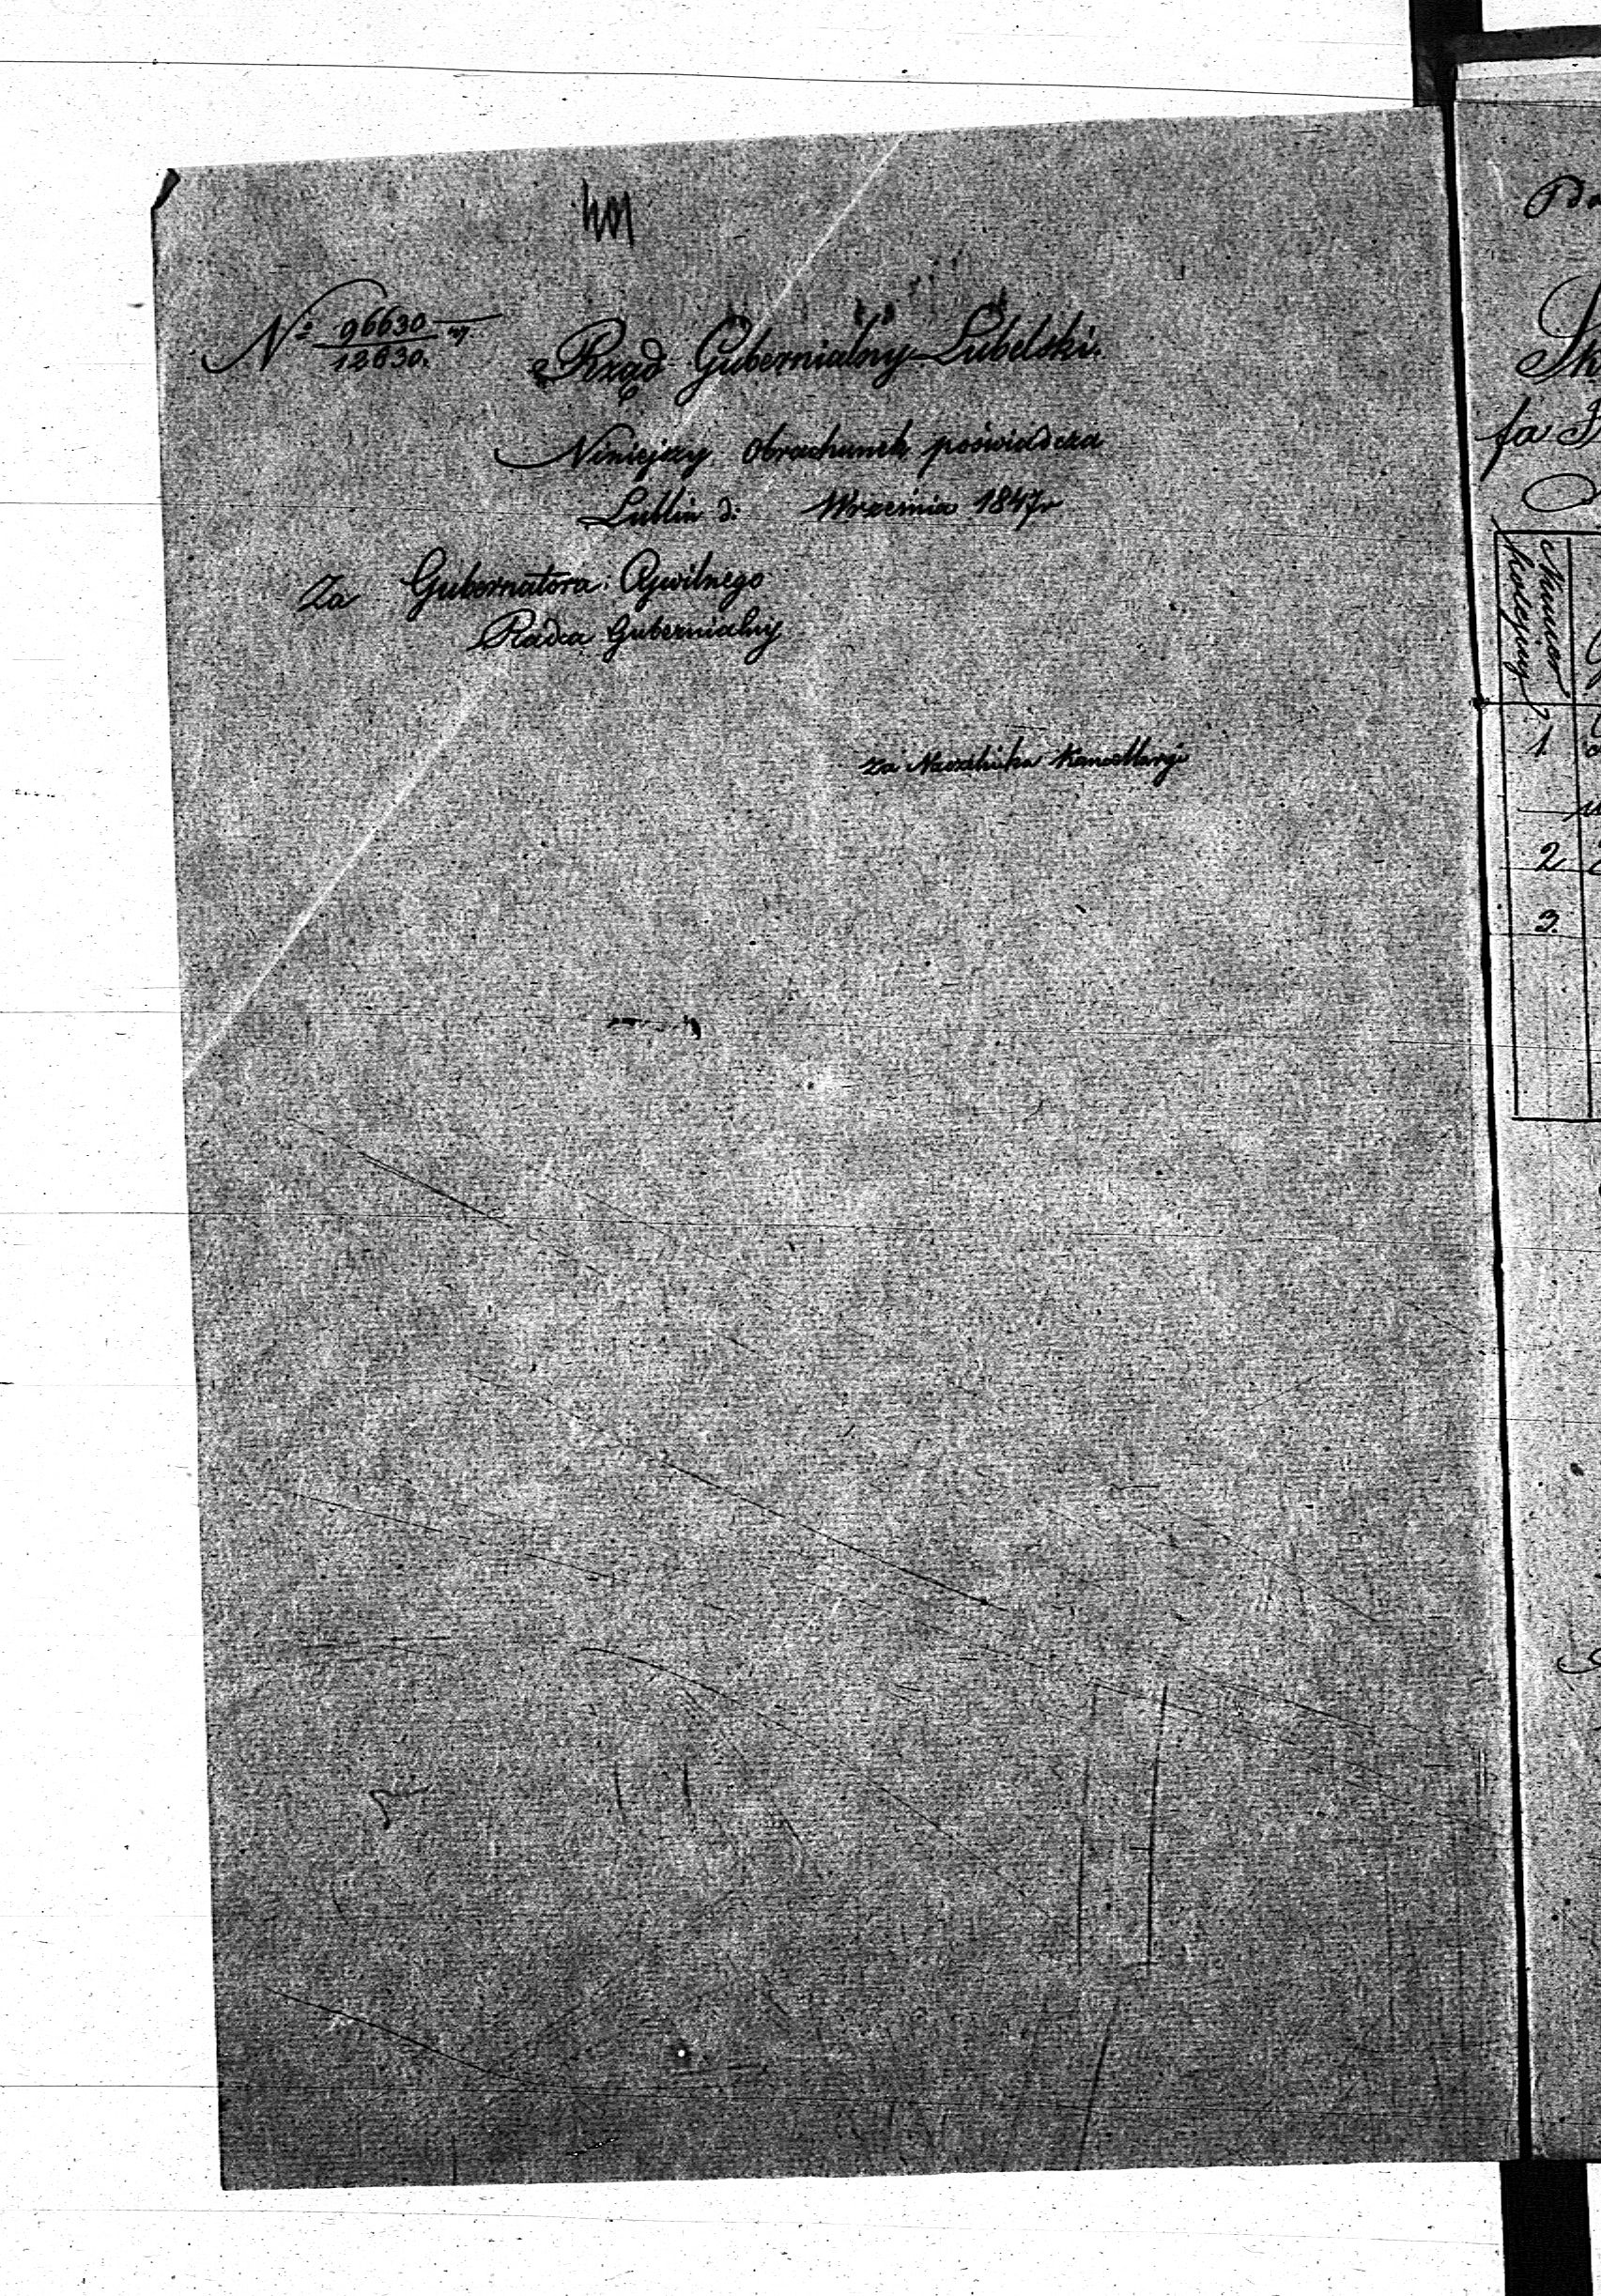 104
Nº 96630
12630.
Rząd Gubernialny Lubelski.
Niniejszy Obrachunek poświadcza
Lublin d. Września 1847r
Za Gubernatora Cywilnego
Radca Gubernialny
Za Naczelnika Kancellaryi
Numer
kolejny
1.
2
3.